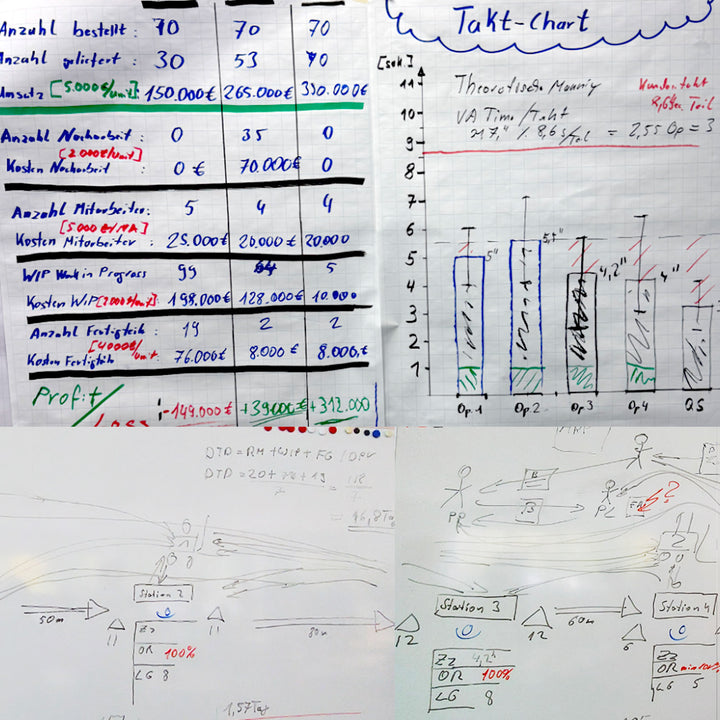 Anzahl bestellt: 70 70 70
Anzahl geliefert: 30 53 70
Umsatz [5.000€/unit] 150.000€ 265.000€ 350.000€
Anzahl Nacharbeit: 0 35 0
[2.000€/unit]
Kosten Nacharbeit: 0 € 70.000€ 0
Anzahl Mitarbeiter: 5 4 4
[5.000€/MA]
Kosten Mitarbeiter: 25.000€ 20.000 20000
WIP Work in Progress 99 64 5
Kosten WiP [2000€/unit]: 198.000€ 128.000€ 10.000
Anzahl Fertigteile: 19 2 2
[4000€/unit]
Kosten Fertigteile 76.000€ 8.000€ 8.000,€
Profit/
Loss -149.000€ +39.000€ +312.000
Takt-Chart
[sek.]
Theoretische
Kundentakt
8,6 sec Teil
VA Time/Takt
217," / 8,6 s/Teil = 2,55 Op = 3
11
10
9
8
7
6
5
4
3
2
1
5"
5,5"
4,2"
4"
Op.1 Op.2 Op3 Op4 QS
DTD = RM + WIP + FG /
DTD = 20 +
= 46,8 Tag
Station 2
50m
11
11
80m
ZZ
OR 100%
LG 8
1,57 Tag
PP
PL
?
Station 3
12
12
60m
6
Station 4
ZZ 4,2"
OR 100%
LG 8
ZZ
OR
LG 5